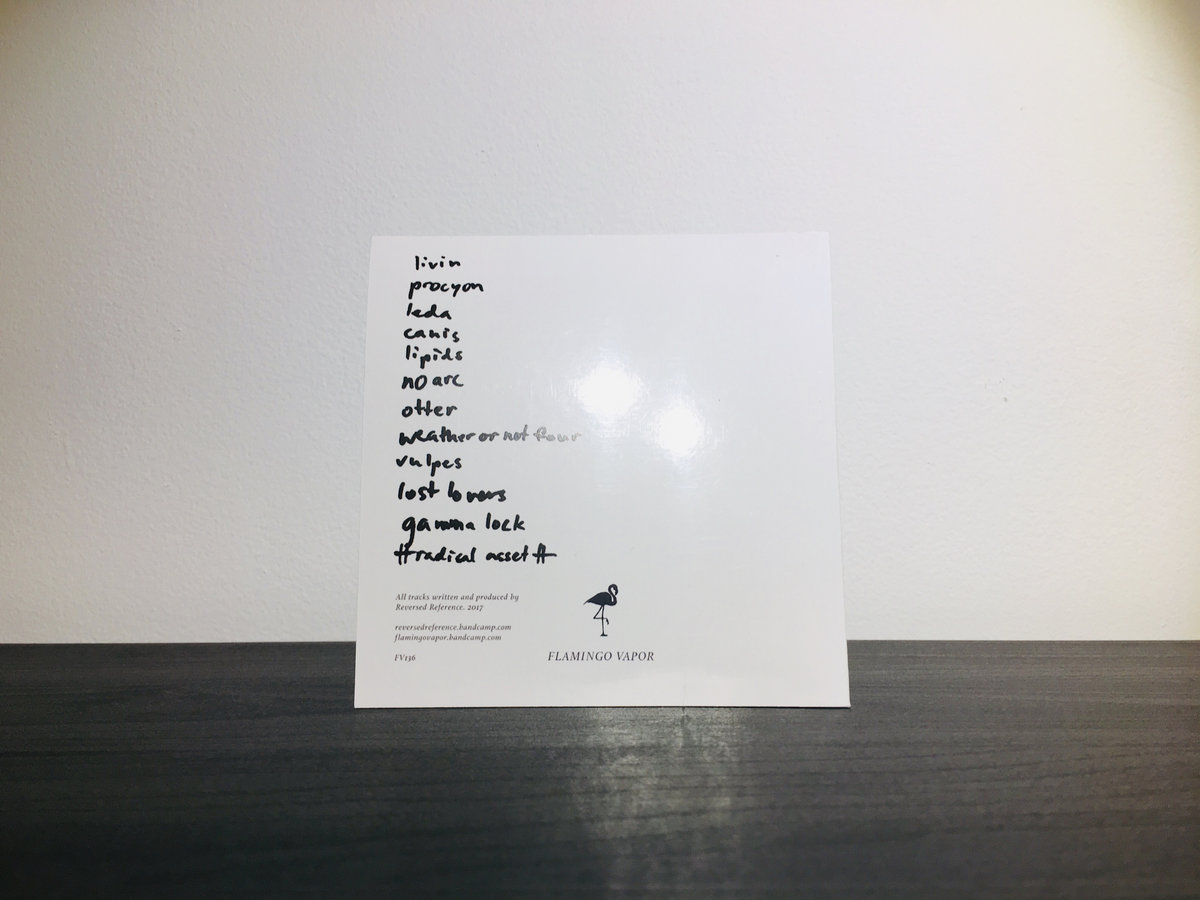 livin
procyon
leda
canis
lipids
no arc
otter
weather or not four
vulpes
lost lovers
gamma lock
#radical asset#
All tracks written and produced by
Reversed Reference. 2017
reversedreference.bandcamp.com
flamingovapor.bandcamp.com
FV136
FLAMINGO VAPOR